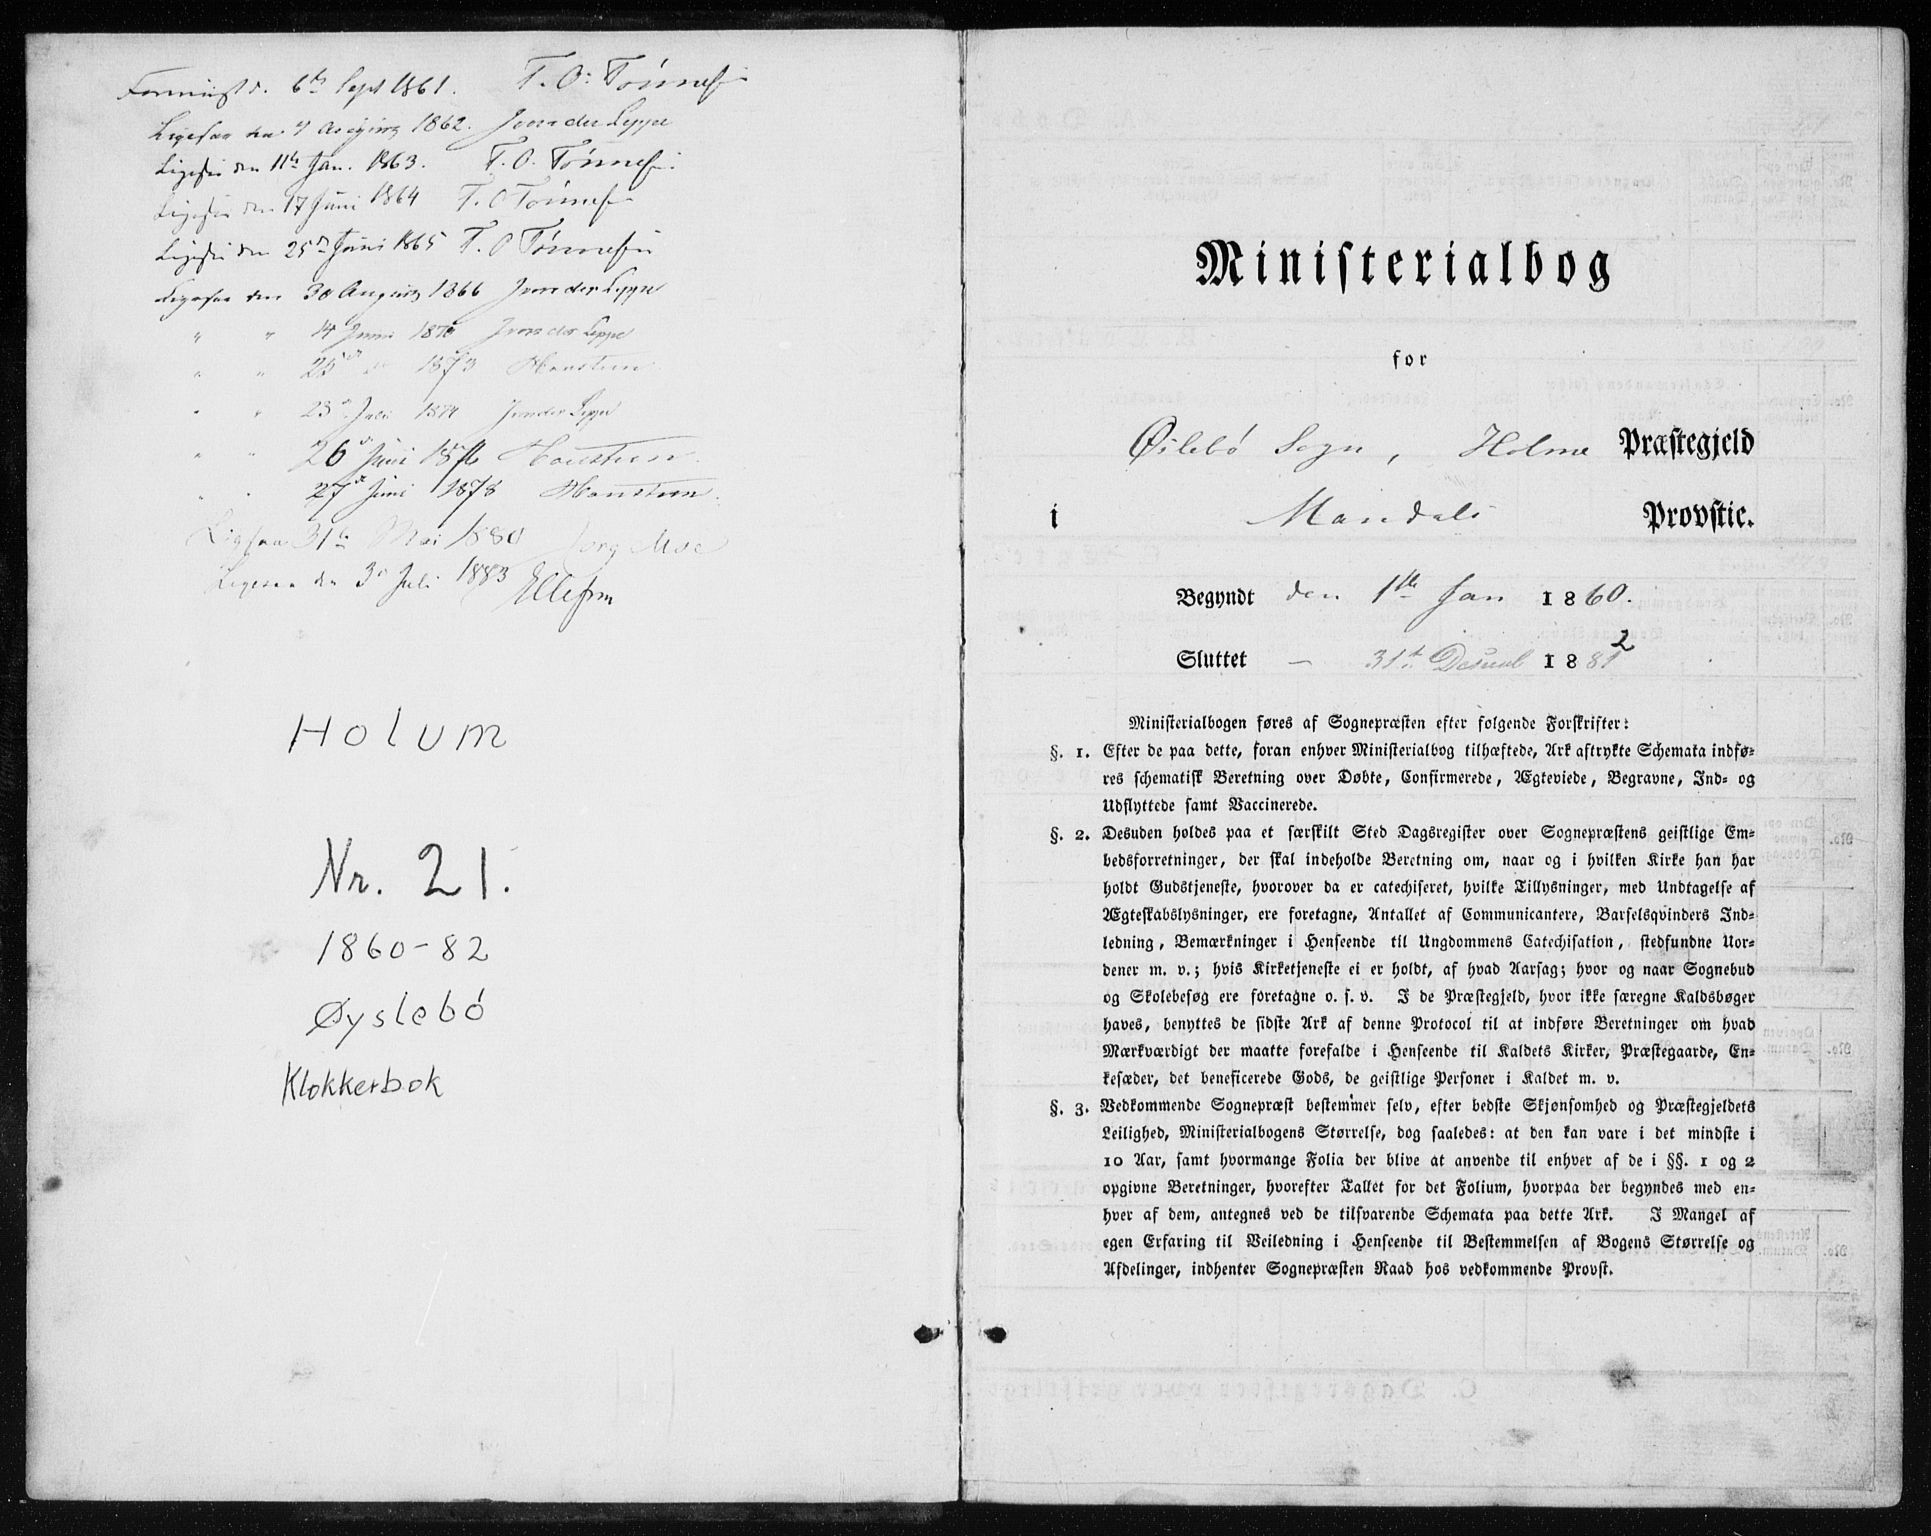 6te Sept 1861. T. O. Tønnes
1862. Jens der Leppe
den 11te Jan. 1863. T. O. Tønnes
den 17 Juni 1864 T. O Tønnes
den 25de Juni 1865 T. O Tønnes
Ligesaa den 30 August 1866
" " 14 Juni
" " 25de do 1873 Houstien
" " 23de Juli 1874
" " 26de Juni 1876 Houstien
" " 27de Juni 1878 Houstien
Ligesaa 31te Mai 1880 Jørg Moe
Ligesaa den 3de Juli 1883 Ellefsen
Holum
Nr. 21.
1860-82
Øyslebö
Klokkerbok
Ministerialbog
for
Øilebö Sogn, Holme Præstegjeld
i Mandals Provstie.
Begyndt den 1ste Jan 1860.
Sluttet – 31te Desemb 1881 2
Ministerialbogen føres af Sognepræsten efter følgende Forskrifter:
§. 1. Efter de paa dette, foran enhver Ministerialbog tilhæftede, Ark aftrykte Schemata indfø-
res schematisk Beretning over Døbte, Confirmerede, Ægteviede, Begravne, Ind- og
Udflyttede samt Vaccinerede.
§. 2. Desuden holdes paa et særskilt Sted Dagsregister over Sognepræstens geistlige Em-
bedsforretninger, der skal indeholde Beretning om, naar og i hvilken Kirke han har
holdt Gudstjeneste, hvorover da er catechiseret, hvilke Tillysninger, med Undtagelse af
Ægteskabslysninger, ere foretagne, Antallet af Communicantere, Barselqvinders Ind-
ledning, Bemærkninger i Henseende til Ungdommens Catechisation, stedfundne Uor-
dener m. v.; hvis Kirketjeneste ei er holdt, af hvad Aarsag; hvor og naar Sognebud
og Skolebesøg ere foretagne o. s. v. I de Præstegjeld, hvor ikke særegne Kaldsbøger
haves, benyttes de sidste Ark af denne Protocol til at indføre Beretninger om hvad
Mærkværdigt der maatte forefalde i Henseende til Kaldets Kirker, Præstegaarde, En-
kesæder, det beneficerede Gods, de geistlige Personer i Kaldet m. v.
§. 3. Vedkommende Sognepræst bestemmer selv, efter bedste Skjønsomhed og Præstegjeldets
Leilighed, Ministerialbogens Størrelse, dog saaledes: at den kan vare i det mindste i
10 Aar, samt hvormange Folia der blive at anvende til enhver af de i §§. 1 og 2
opgivne Beretninger, hvorefter Tallet for det Folium, hvorpaa der begyndes med en-
hver af dem, antegnes ved de tilsvarende Schemata paa dette Ark. I Mangel af
egen Erfaring til Veiledning i Henseende til Bestemmelsen af Bogens Størrelse og
Afdelinger, indhenter Sognepræsten Raad hos vedkommende Provst.